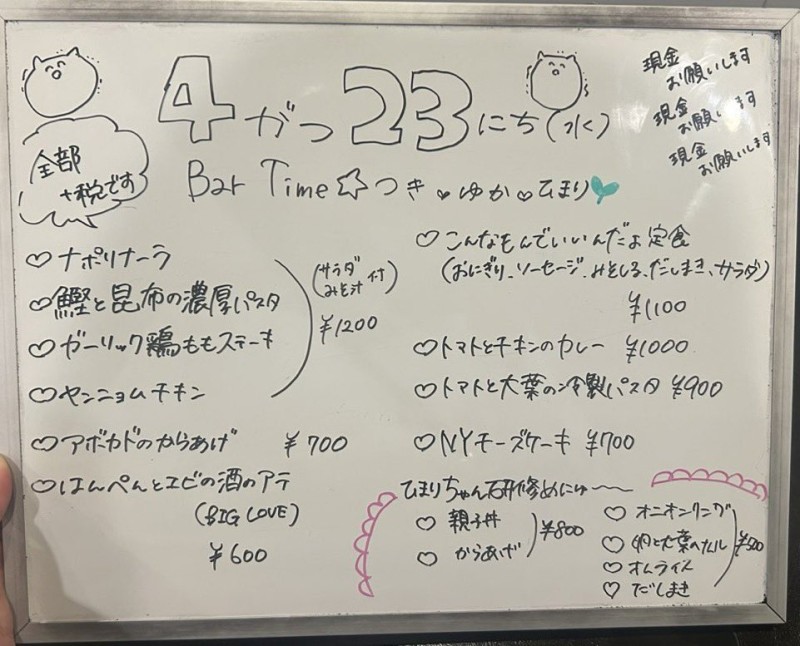 4がつ23にち(水)
現金
お願いします
現金
お願いします
現金
お願いします
全部
+税です
Bar Time☆つき♥ゆか♡ひまり
♡ナポリナーラ
♡鰹と昆布の濃厚パスタ
♡ガーリック鶏ももステーキ
♡ヤンニョムチキン
(サラダ
みそ汁 付)
¥1200
♡アボカドのからあげ ¥700
♡はんぺんとエビの酒のアテ
(BIG LOVE)
¥600
♡こんなもんでいいんだよ定食
(おにぎり、ソーセージ、みそしる、だしまき、サラダ)
¥1100
♡トマトとチキンのカレー ¥1000
♡トマトと大葉の冷製パスタ ¥900
♡NYチーズケーキ ¥700
ひまりちゃん研修めにゅ〜
♡親子丼
♡からあげ
¥800
♡オニオンリング
♡卵と大葉のナムル
♡オムライス
♡だしまき
¥500